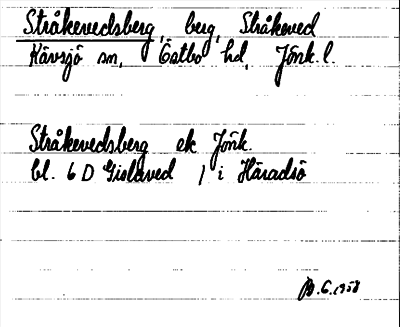 Stråkevedsberg, berg, Stråkeved
Kävsjö sn, Östbo hd, Jönk. l.
Stråkevedsberg ek Jönk.
bl. 6 D Gislaved 1 i Häradsö